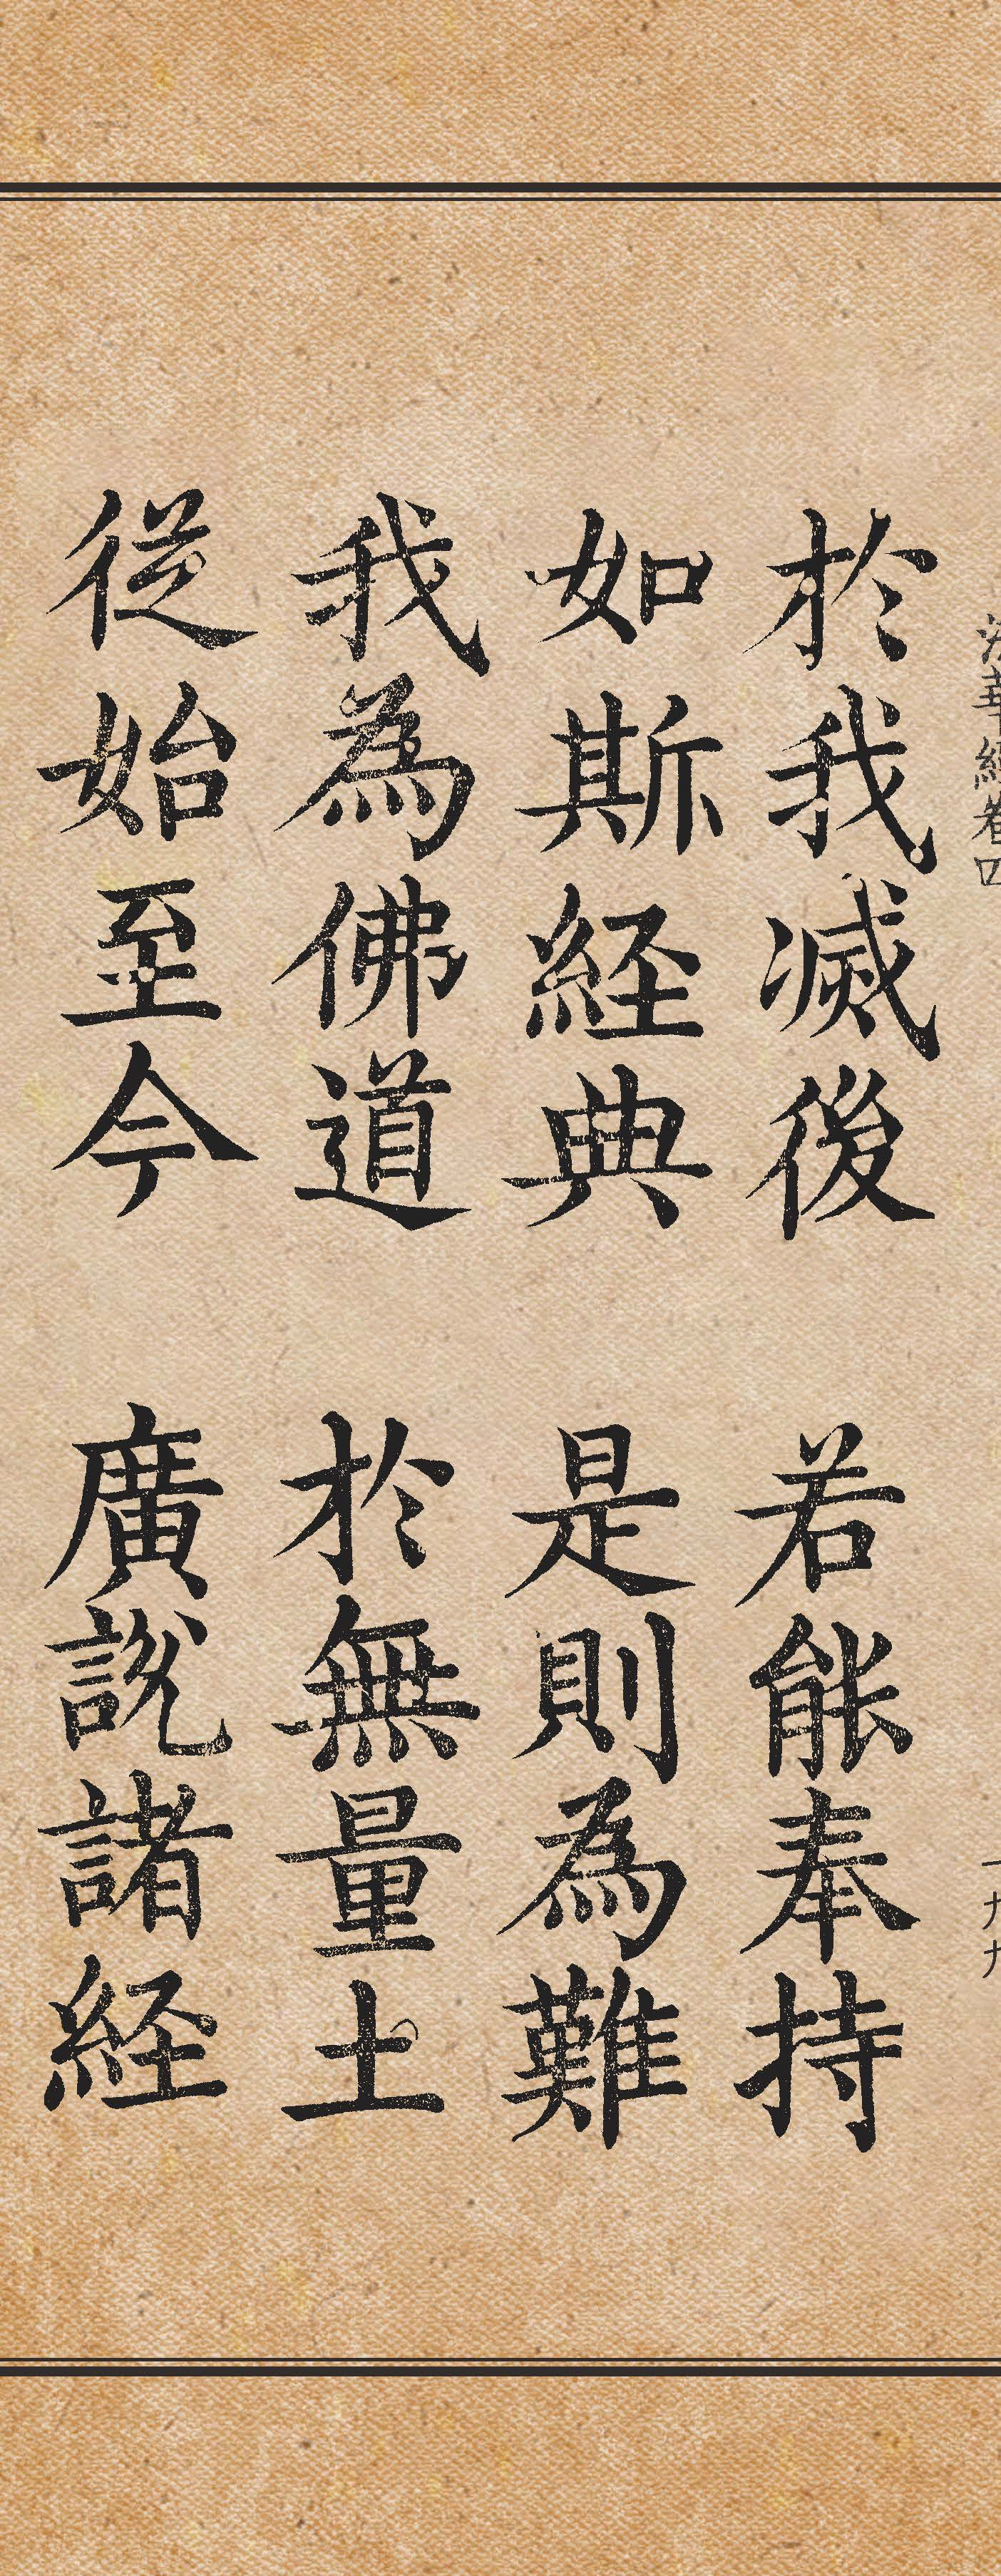 法華経巻四 一九九
於我滅後 若能奉持
如斯経典 是則為難
我為佛道 於無量土
従始至今 廣説諸経